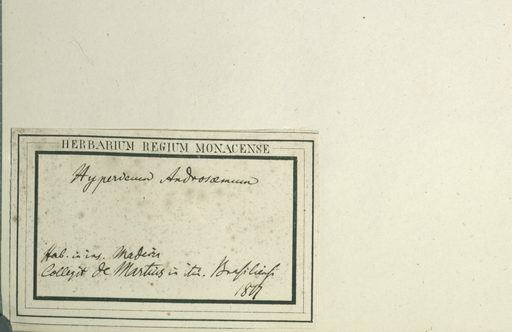 HERBARIUM REGIUM MONACENSE
Hypericum Androsaemum
Hab. in ins. Madeira
Collegit de Martius in itin. Brasiliensi
1817